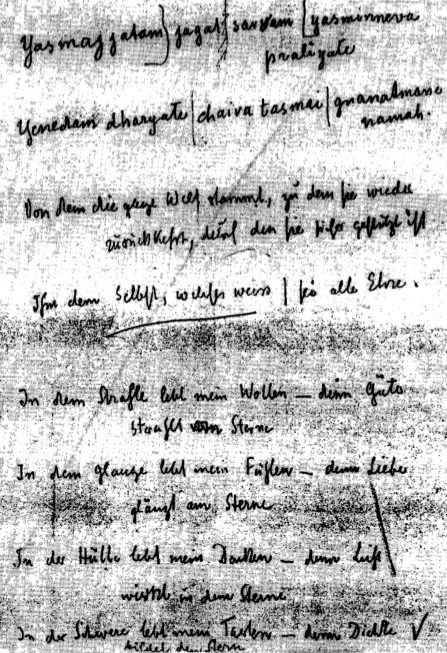 Yasmajjatam) jagat | sarvam [yasminneva
praliyate
Yenedam dharyate | chaiva tasmai | gnanatmane
namah.
Von dem die ganze Welt stammt, zu dem sie wieder
zurückkehrt, durch den sie sicher gestützt ist
Ihm dem Selbst, welches weiss | sei alle Ehre.
In dem Strahle lebt mein Wollen — denn Güte
strahlt vom Sterne
In dem Glanze lebt mein Fühlen — denn Liebe
glänzt am Sterne
In der Hülle lebt mein Denken — denn Licht
wirkt in dem Sterne
In der Schwere lebt mein Tasten — denn Dichte ✓
bildet den Stern